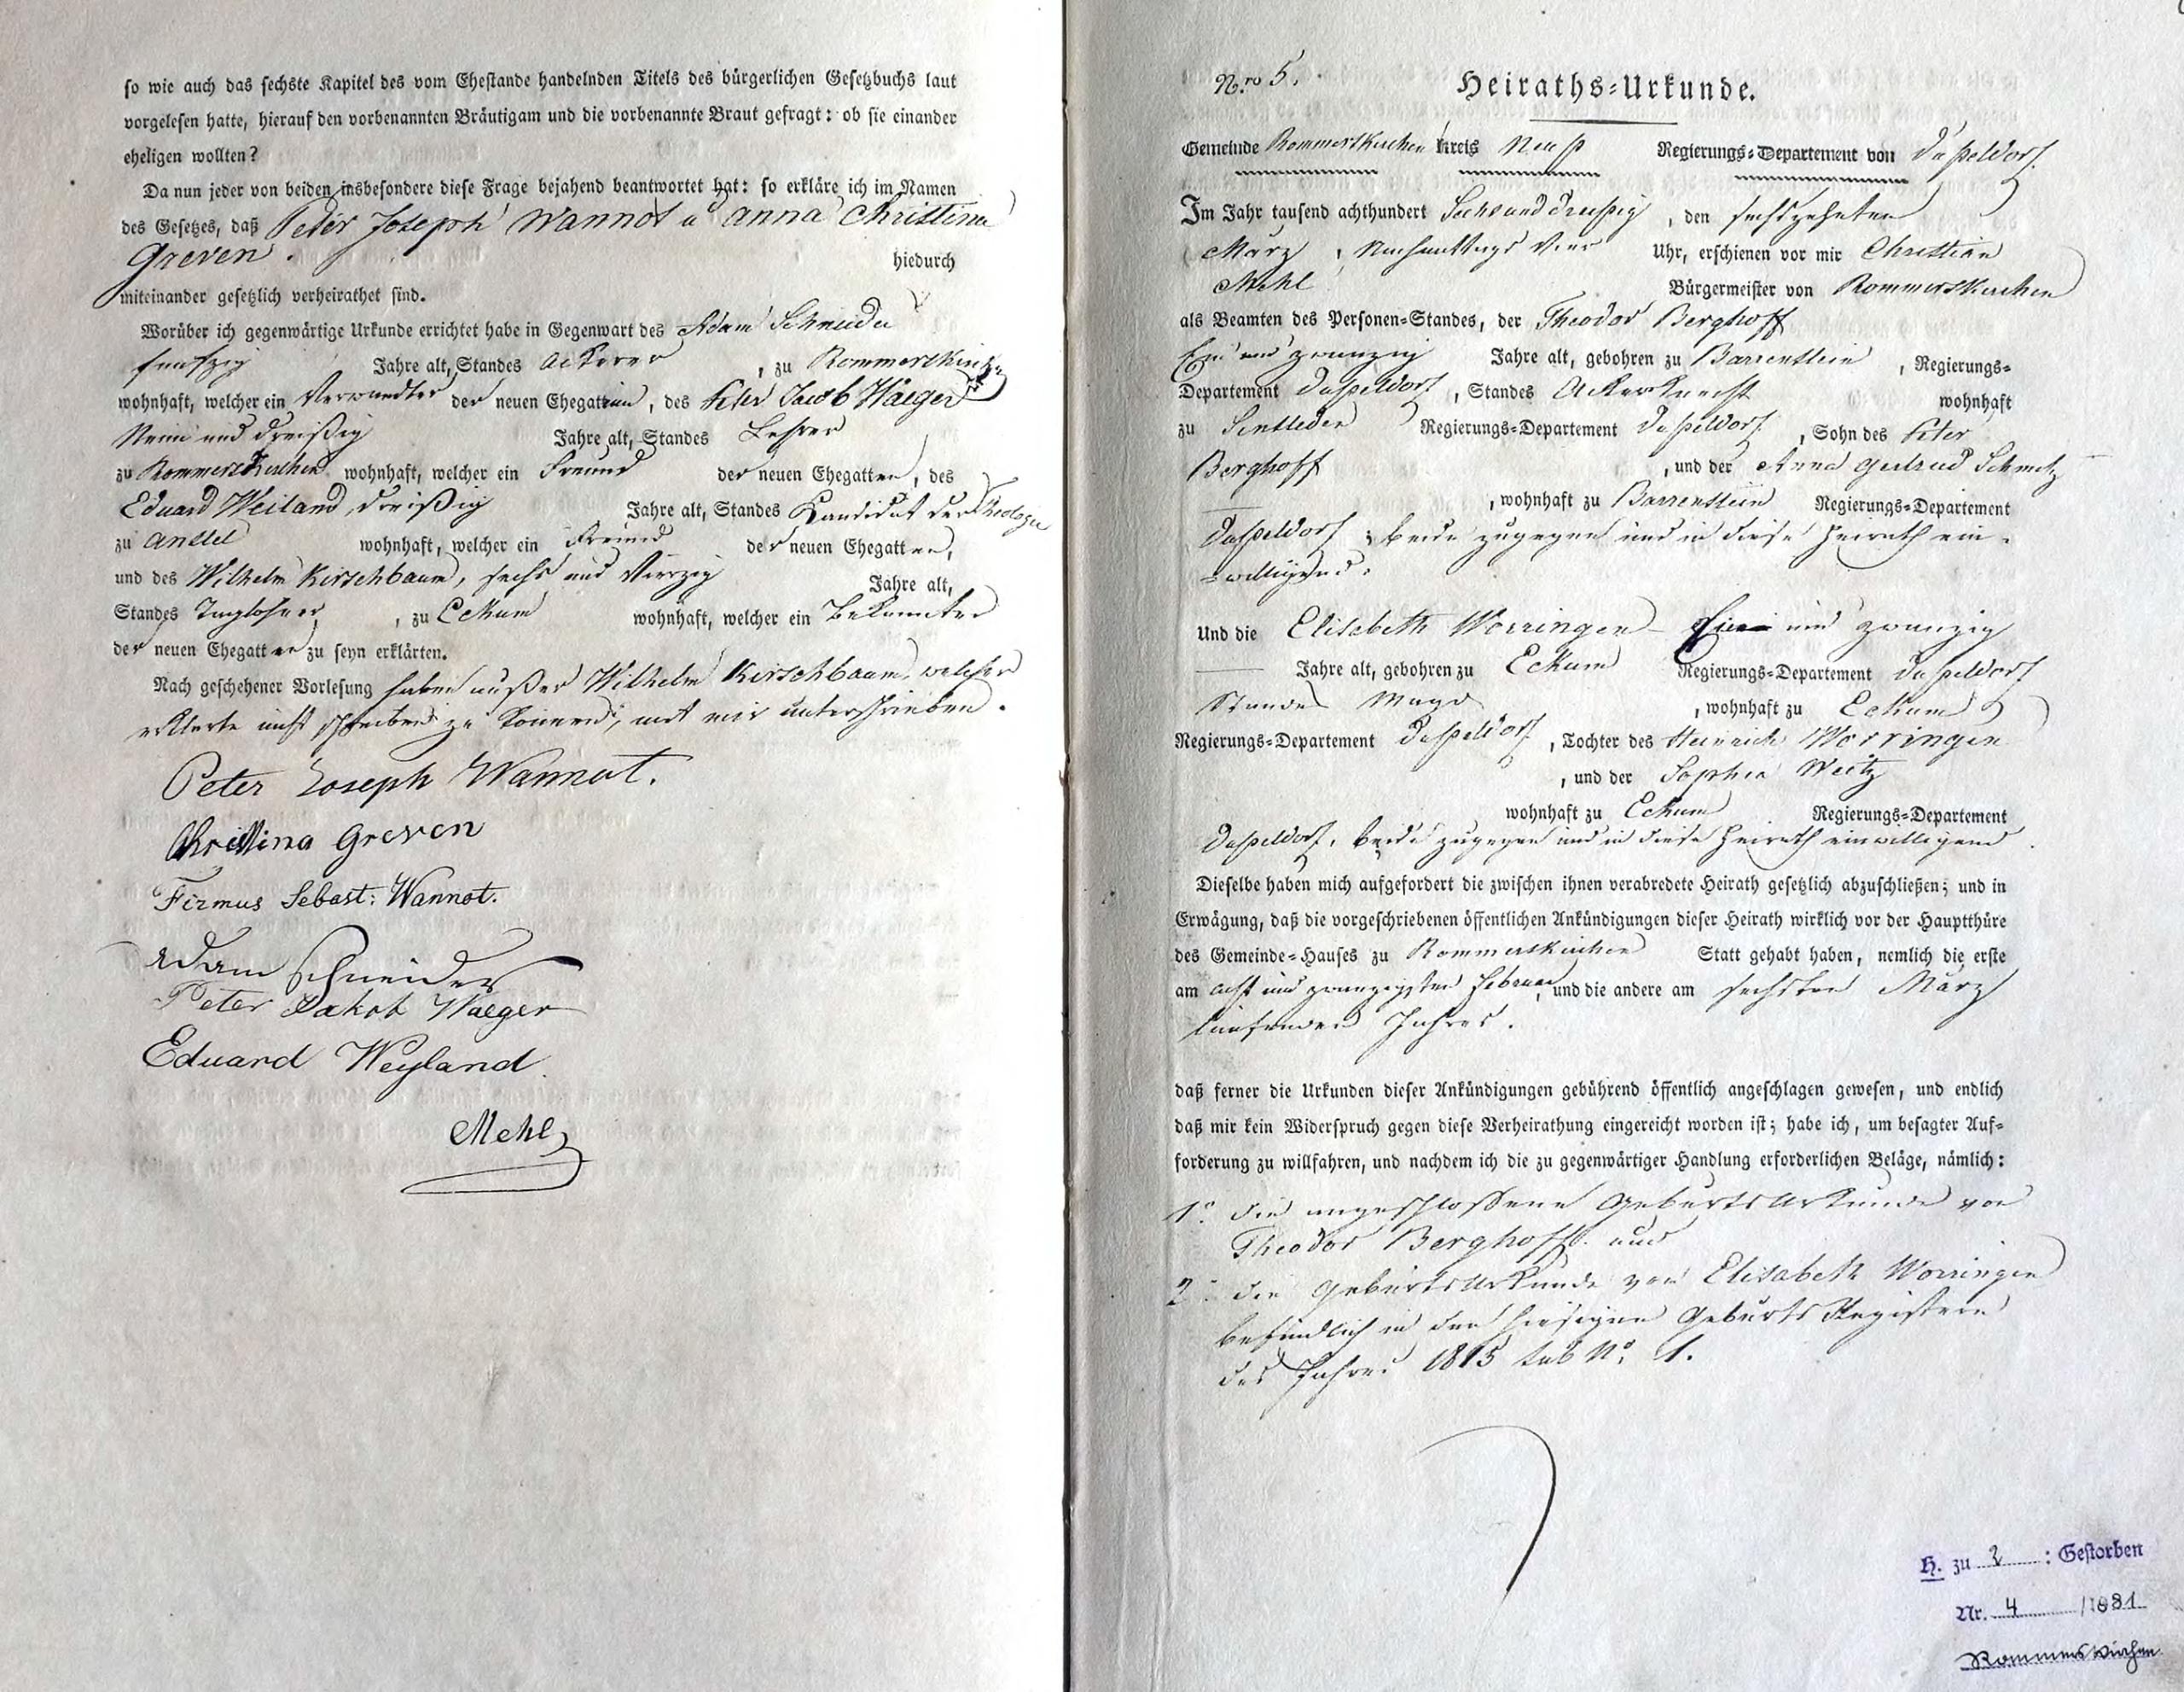 so wie auch das sechste Kapitel des vom Ehestande handelnden Titels des bürgerlichen Gesetzbuchs laut
vorgelesen hatte, hierauf den vorbenannten Bräutigam und die vorbenannte Braut gefragt: ob sie einander
eheligen wollten?
Da nun jeder von beiden insbesondere diese Frage bejahend beantwortet hat: so erkläre ich im Namen
des Gesetzes, daß Peter Joseph Wannot u Anna Christina
Greven. hiedurch
miteinander gesetzlich verheirathet sind.
Worüber ich gegenwärtige Urkunde errichtet habe in Gegenwart des Adam Schneider
funfzig Jahre alt, Standes Ackerer, zu Rommerskirchen
wohnhaft, welcher ein Verwandter der neuen Ehegattinn, des Peter Jacob Waeger
Neun und dreißig Jahre alt, Standes Lehrer
zu Rommerskirchen wohnhaft, welcher ein Freund der neuen Ehegatten, des
Eduard Weiland, dreißig Jahre alt, Standes Kandidat der Theologie
zu Anstel wohnhaft, welcher ein Freund der neuen Ehegatten,
und des Wilhelm Kirschbaum, sechs und Vierzig Jahre alt,
Standes Taglohner, zu Eckum wohnhaft, welcher ein Bekannter
der neuen Ehegatten zu seyn erklärten.
Nach geschehener Vorlesung haben außer Wilhelm Kirschbaum, welcher
erklärte nicht schreiben zu können, mit mir unterschrieben.
Peter Joseph Wannot.
Christina Greven
Firmus Sebast: Wannot.
Adam Schneider
Peter Jakob Waeger
Eduard Weyland.
Mehl
Nro 5. Heiraths-Urkunde.
Gemeinde Rommerskirchen Kreis Neuß Regierungs-Departement von Düßeldorf.
Im Jahr tausend achthundert Sechs und dreißig, den sechszehnten
März, Nachmittags Vier Uhr, erschienen vor mir Christian
Mehl Bürgermeister von Rommerskirchen
als Beamten des Personen-Standes, der Theodor Berghoff
Ein und zwanzig Jahre alt, gebohren zu Barrenstein, Regierungs-
Departement Düßeldorf, Standes Ackerknecht wohnhaft
zu Sinsteden Regierungs-Departement Düßeldorf, Sohn des Peter
Berghoff, und der Anna Gertrud Schmitz
, wohnhaft zu Barrenstein Regierungs-Departement
Düßeldorf; beide zugegen und in diese Heirath ein-
-willigend.
Und die Elisabeth Worringen Ein und zwanzig
Jahre alt, gebohren zu Eckum Regierungs-Departement Düßeldorf
Standes Magd, wohnhaft zu Eckum
Regierungs-Departement Düßeldorf, Tochter des Heinrich Worringen
, und der Sophia Weitz
wohnhaft zu Eckum Regierungs-Departement
Düßeldorf, beide zugegen und in diese Heirath einwilligend.
Dieselbe haben mich aufgefordert die zwischen ihnen verabredete Heirath gesetzlich abzuschließen; und in
Erwägung, daß die vorgeschriebenen öffentlichen Ankündigungen dieser Heirath wirklich vor der Hauptthüre
des Gemeinde-Hauses zu Rommerskirchen Statt gehabt haben, nemlich die erste
am acht und zwanzigsten Februar, und die andere am sechsten März
laufenden Jahres.
daß ferner die Urkunden dieser Ankündigungen gebührend öffentlich angeschlagen gewesen, und endlich
daß mir kein Widerspruch gegen diese Verheirathung eingereicht worden ist; habe ich, um besagter Auf-
forderung zu willfahren, und nachdem ich die zu gegenwärtiger Handlung erforderlichen Beläge, nämlich:
1° die angeschloßene Geburts Urkunde von
Theodor Berghoff. und
2° die Geburts Urkunde von Elisabeth Worringen
befindlich in den hiesigen Geburts Registern
des Jahres 1815 sub No. 1.
H. zu 2 : Gestorben
Nr. 4 /1881
Rommerskirchen